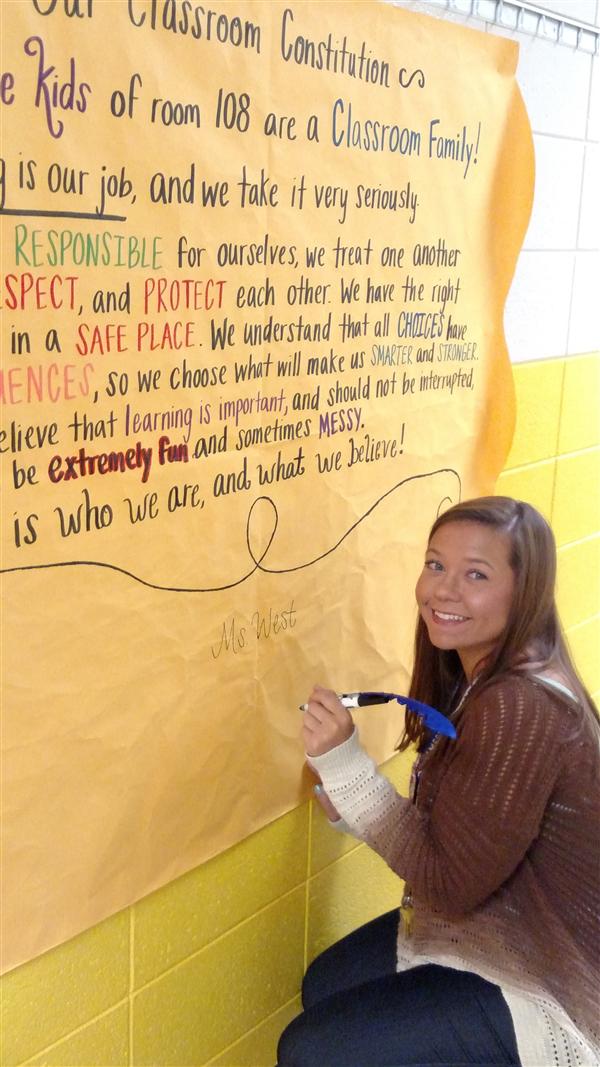 Our Classroom Constitution
Kids of room 108 are a Classroom Family!
is our job, and we take it very seriously.
RESPONSIBLE for ourselves, we treat one another
SPECT, and PROTECT each other. We have the right
in a SAFE PLACE. We understand that all CHOICES have
UENCES, so we choose what will make us SMARTER and STRONGER.
elieve that learning is important, and should not be interrupted,
be extremely fun and sometimes MESSY.
is who we are, and what we believe!
Ms. West